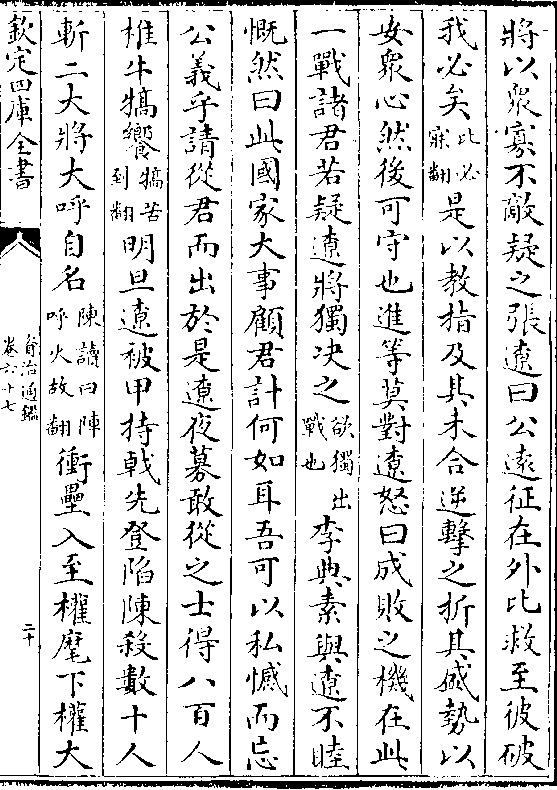 將以衆寡不敵疑之張遼曰公遠征在外比救至彼破
我必矣比必寐翻是以教指及其未合逆擊之折其威勢以
安衆心然後可守也進等莫對遼怒曰成敗之機在此
一戰諸君若疑遼將獨决之欲獨出戰也李典素與遼不睦
慨然曰此國家大事顧君計何如耳吾可以私憾而忘
公義乎請從君而出於是遼夜募敢從之士得八百人
椎牛犒饗犒苦到翻明旦遼被甲持戟先登陷陳殺數十人
斬二大將大呼自名陳讀曰陣呼火故翻衝壘入至權麾下權大
欽定四庫全書
資治通鑑
卷六十七
二十